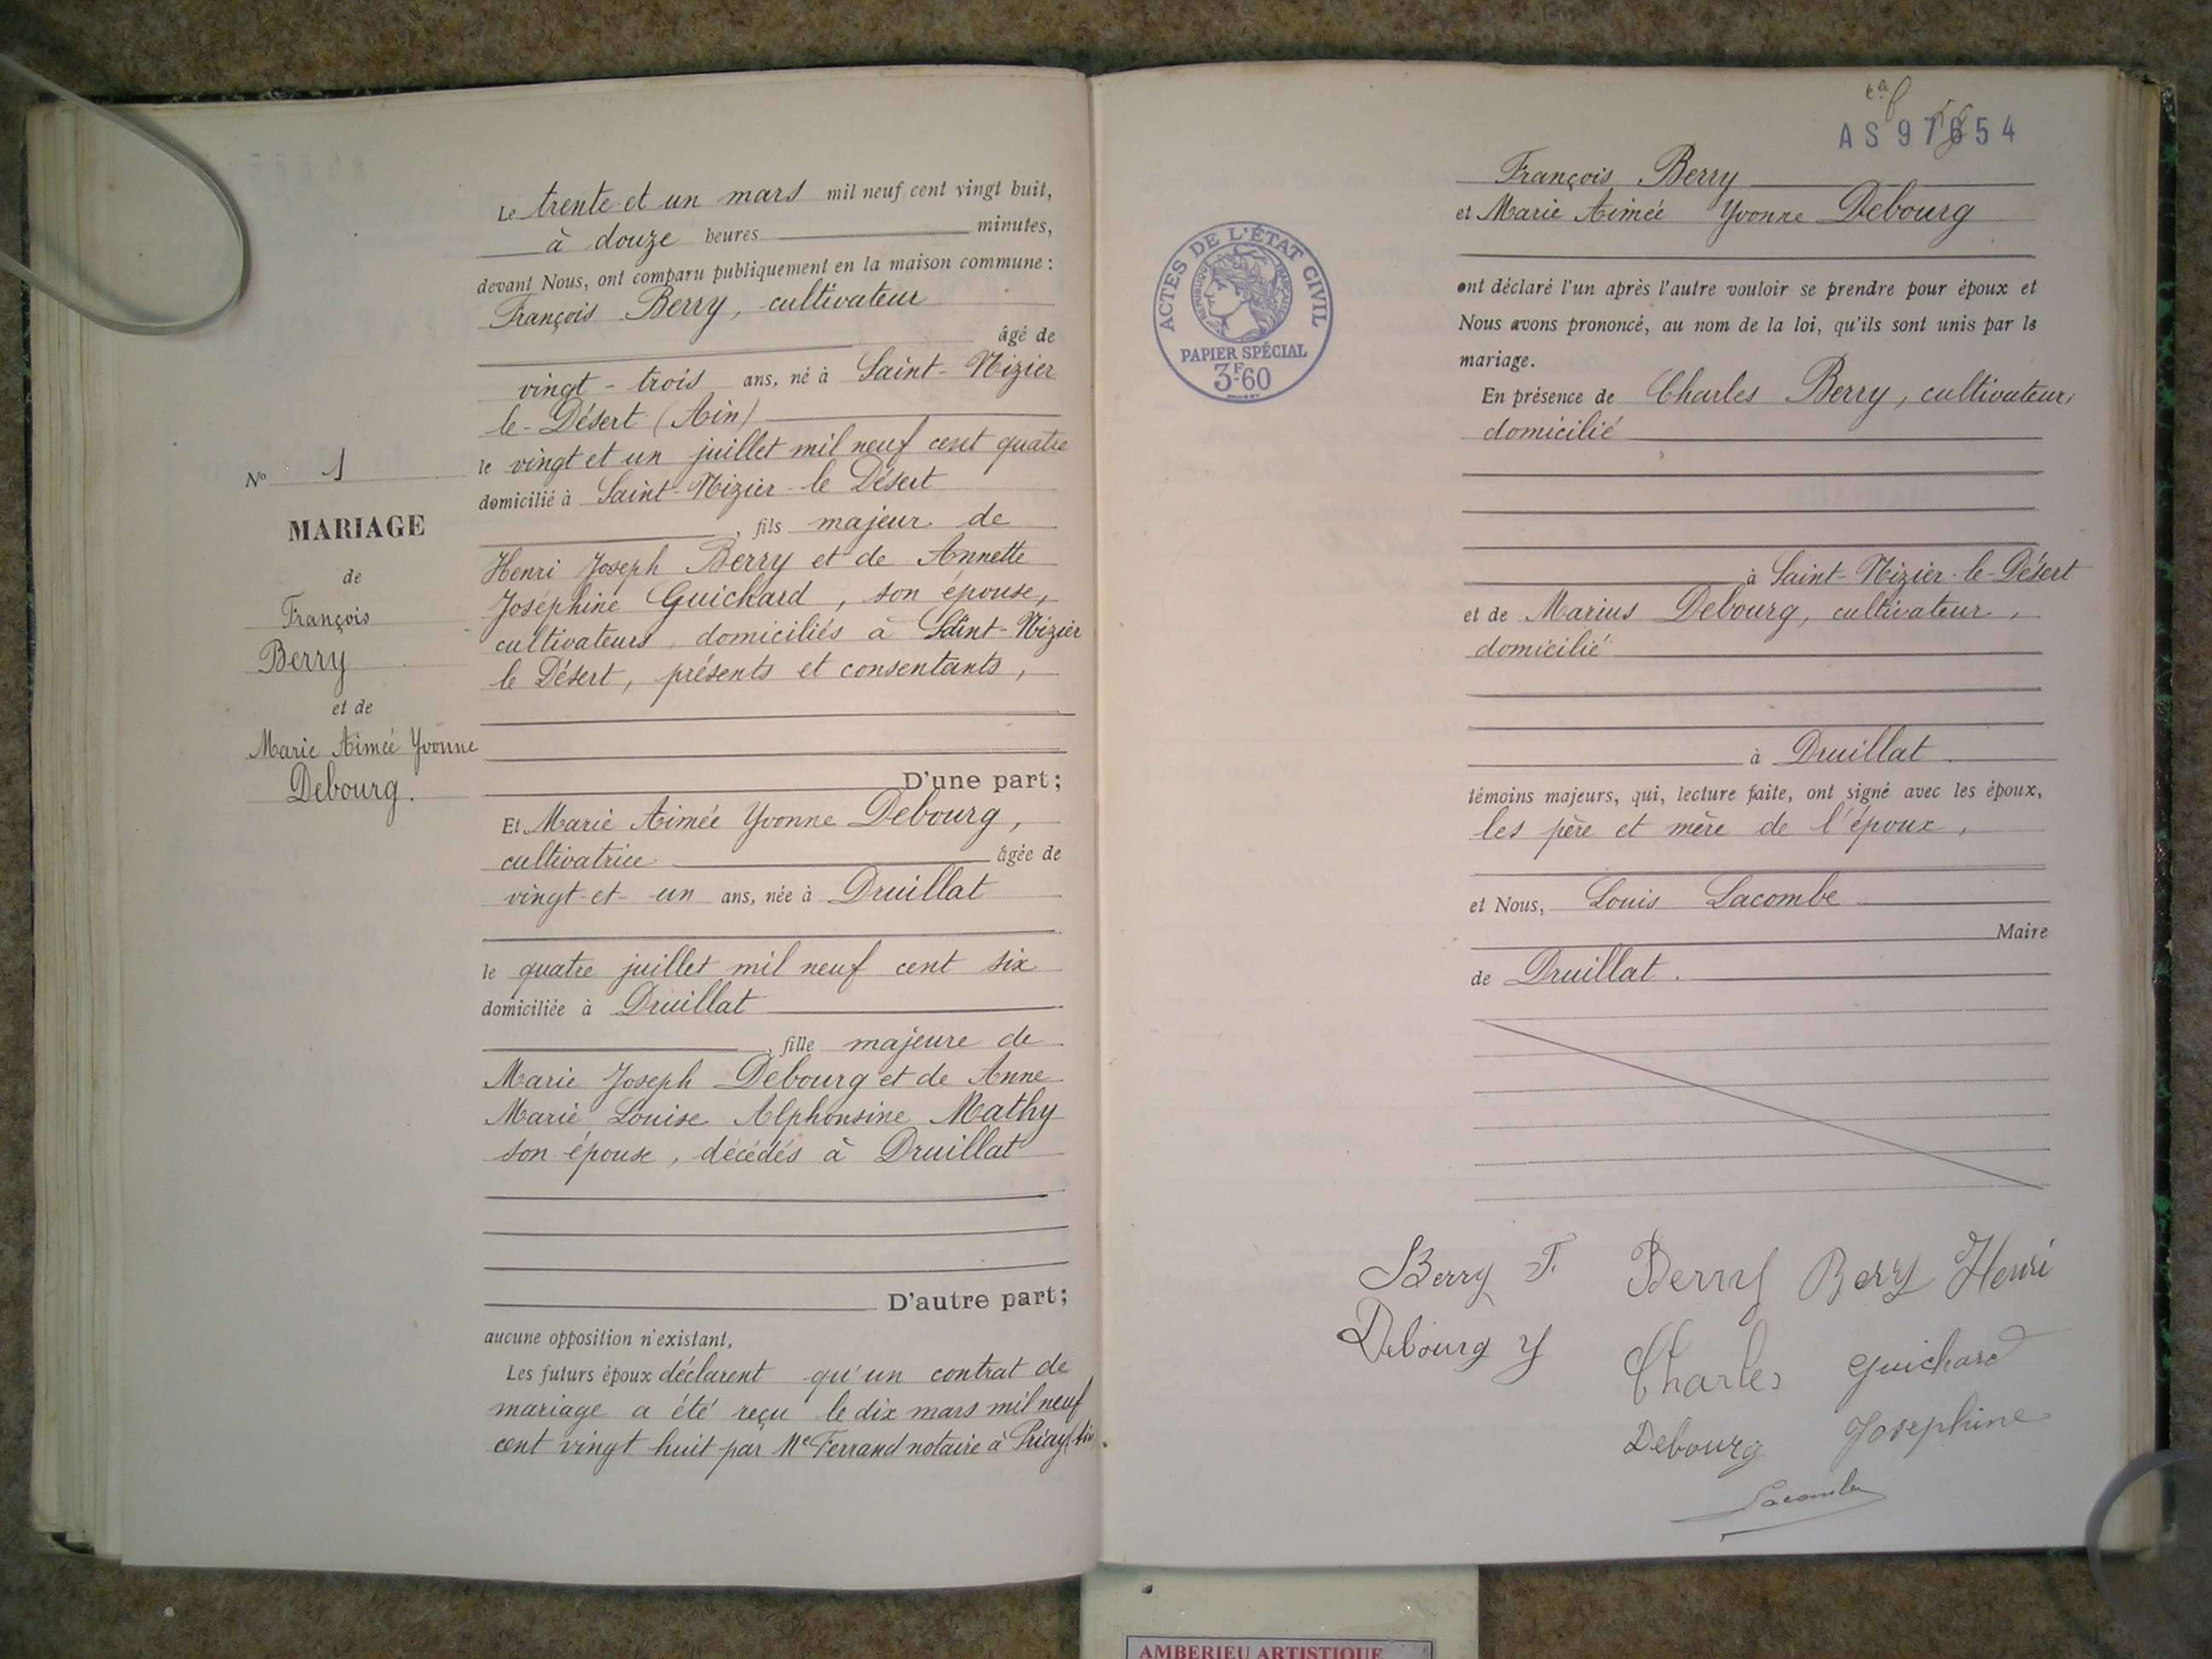 Nº 1
MARIAGE
de
François
Berry
et de
Marie Aimée Yvonne
Debourg.
Le trente et un mars mil neuf cent vingt huit,
à douze heures minutes,
devant Nous, ont comparu publiquement en la maison commune :
François Berry, cultivateur
âgé de
vingt-trois ans, né à Saint-Nizier
le-Désert (Ain)
le vingt et un juillet mil neuf cent quatre
domicilié à Saint-Nizier-le Désert
, fils majeur de
Henri Joseph Berry et de Annette
Joséphine Guichard, son épouse,
cultivateurs, domiciliés à Saint-Nizier
le Désert, présents et consentants,
D'une part;
Et Marie Aimée Yvonne Debourg,
cultivatrice âgée de
vingt-et-un ans, née à Druillat
le quatre juillet mil neuf cent six
domiciliée à Druillat
, fille majeure de
Marie Joseph Debourg et de Anne
Marie Louise Alphonsine Mathy
son épouse, décédés à Druillat
D'autre part;
aucune opposition n'existant,
Les futurs époux déclarent qu'un contrat de
mariage a été reçu le dix mars mil neuf
cent vingt huit par Me Ferrand notaire à Priay (Ain).
AS 97654
ACTES DE L'ÉTAT CIVIL
RÉPUBLIQUE FRANÇAISE
PAPIER SPÉCIAL
3F60
François Berry
et Marie Aimée Yvonne Debourg
ont déclaré l'un après l'autre vouloir se prendre pour époux et
Nous avons prononcé, au nom de la loi, qu'ils sont unis par le
mariage.
En présence de Charles Berry, cultivateur,
domicilié
à Saint-Nizier-le-Désert
et de Marius Debourg, cultivateur,
domicilié
à Druillat
témoins majeurs, qui, lecture faite, ont signé avec les époux,
les père et mère de l'époux,
et Nous, Louis Lacombe
Maire
de Druillat.
Berry F. Berry Berry Henri
Debourg Y Charles Guichard
Debourg Josephine
Lacombe
AMBERIEU ARTISTIQUE